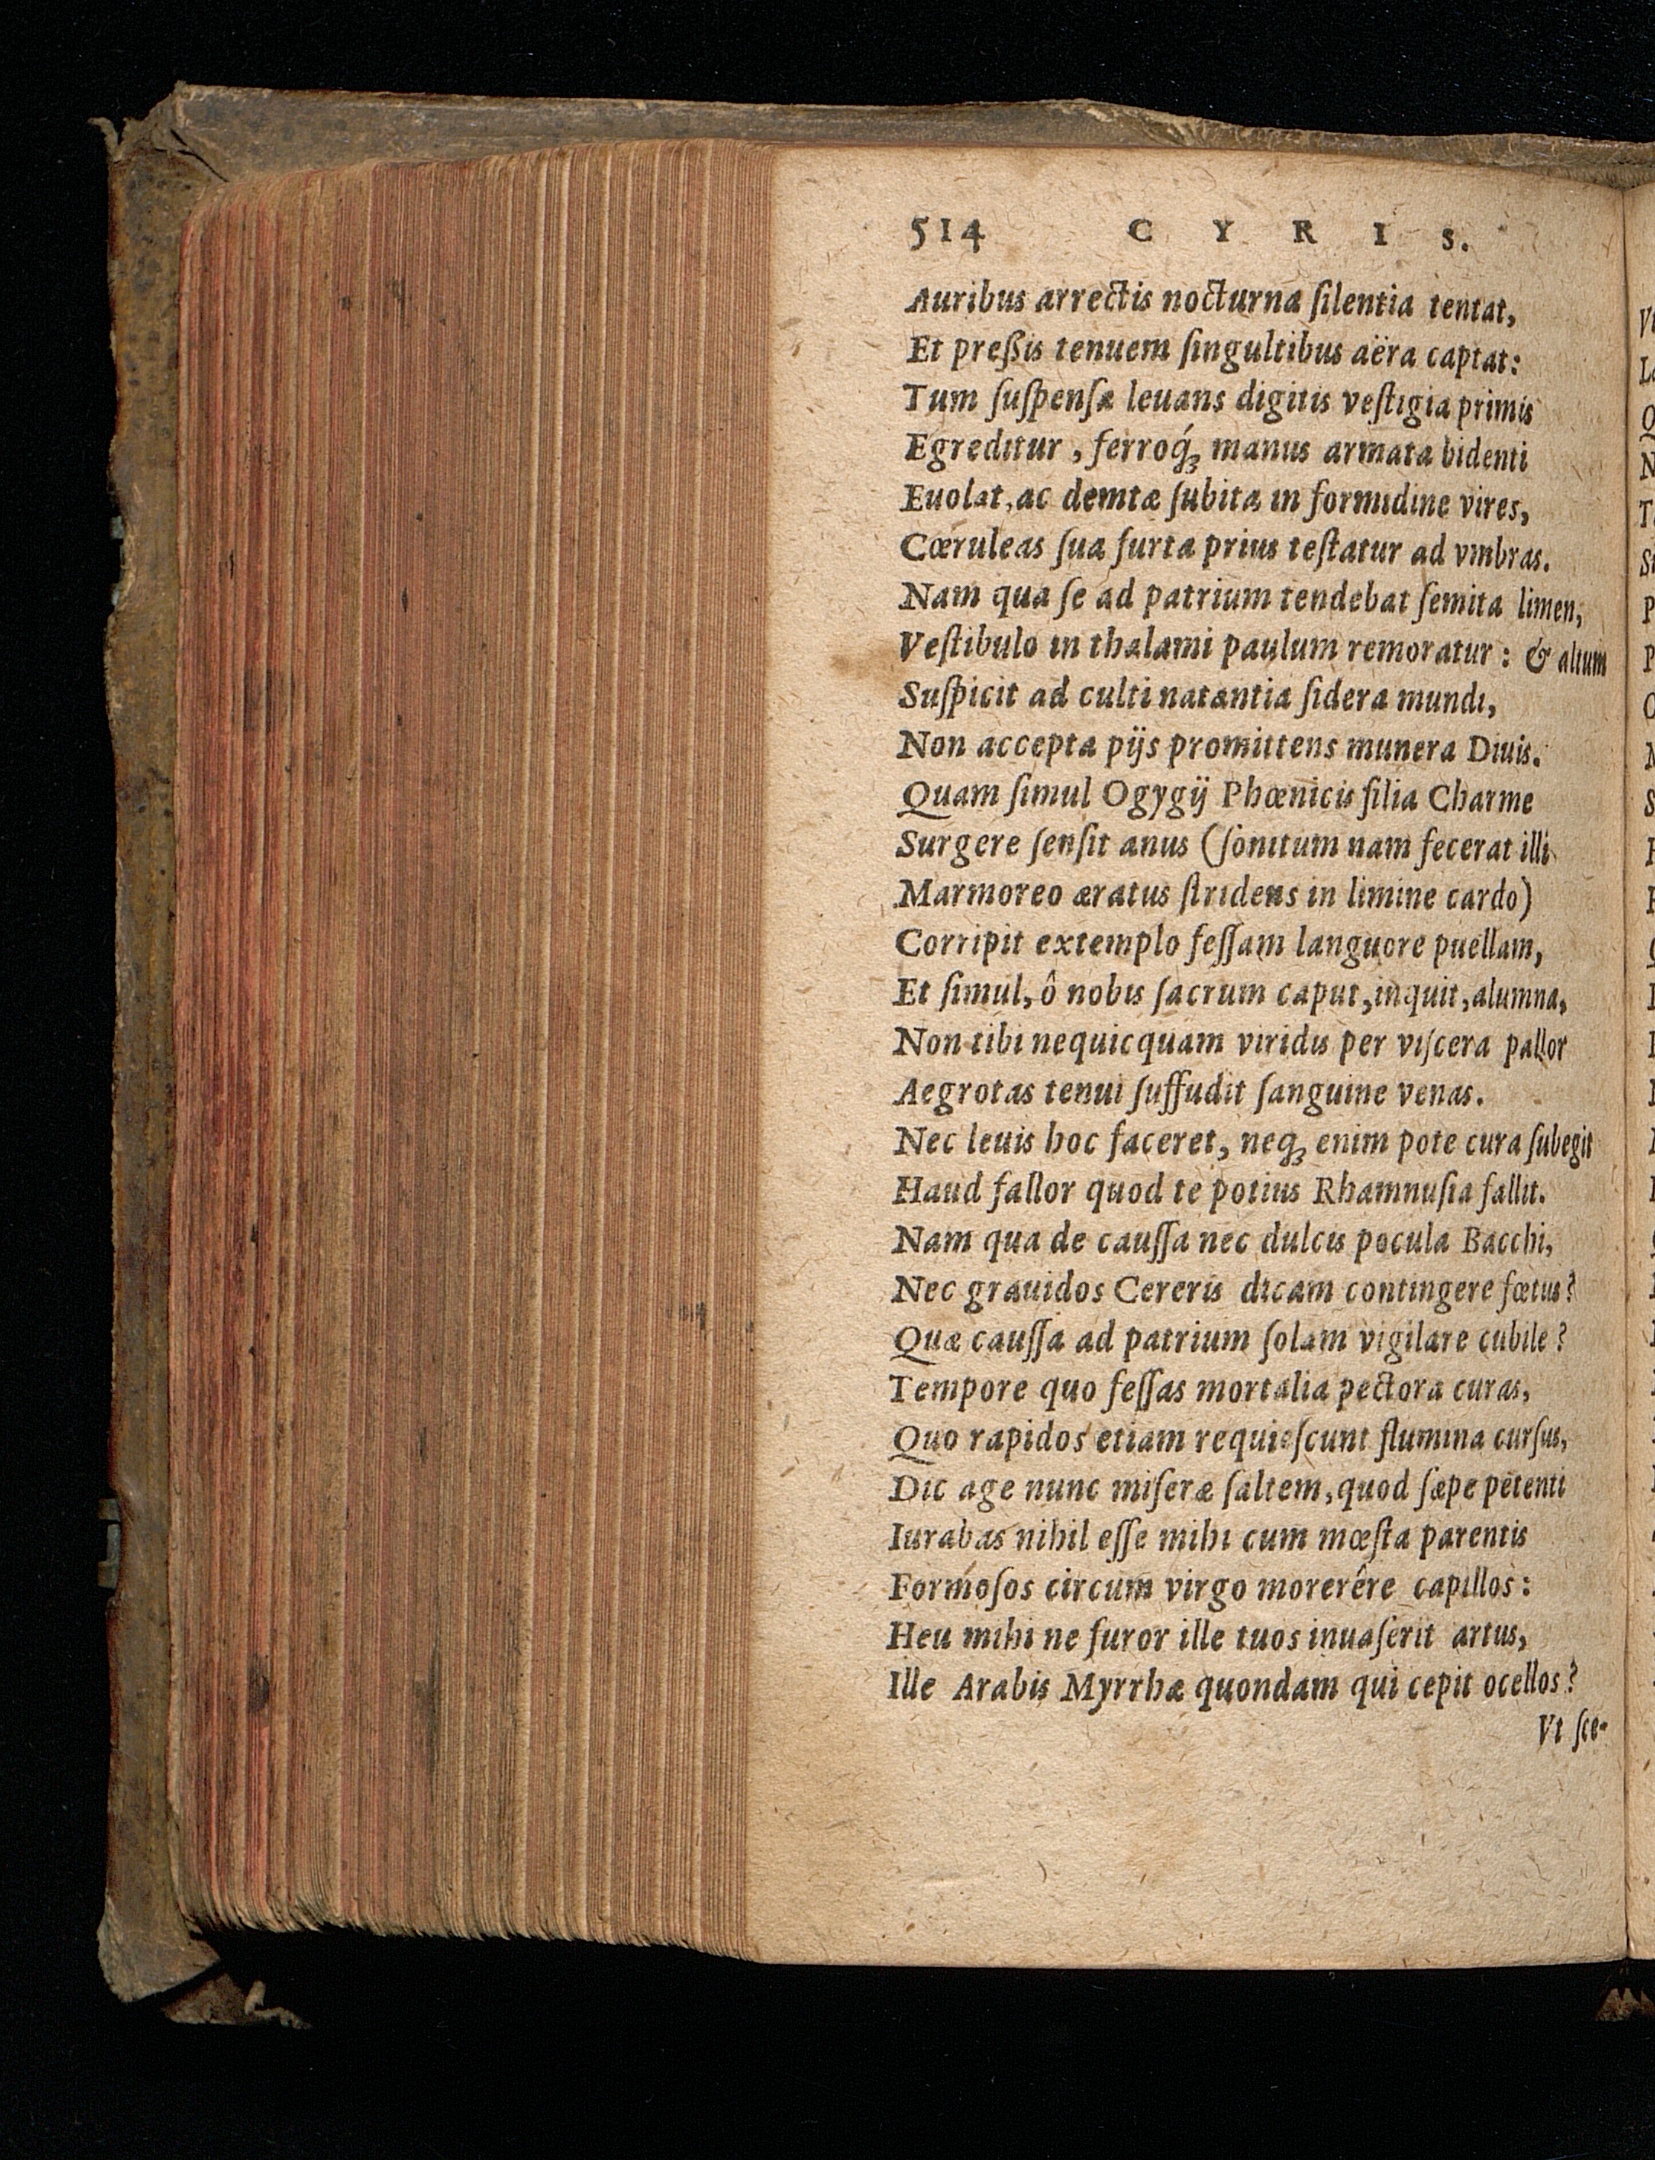 514 CYRIS.
Auribus arrectis nocturna ſilentia tentat,
Et preßis tenuem ſingultibus aëra captat:
Tum ſuſpenſa leuans digitis veſtigia primis
Egreditur, ferroq́ꝫ manus armata bidenti
Euolat, ac demtæ ſubita in formidine vires,
Cœruleas ſua furta prius teſtatur ad vmbras.
Nam qua ſe ad patrium tendebat ſemita limen,
Veſtibulo in thalami paulum remoratur: & altum
Suſpicit ad culti natantia ſidera mundi,
Non accepta pijs promittens munera Diuis.
Quam ſimul Ogygij Phœnicis filia Charme
Surgere ſenſit anus (ſonitum nam fecerat illi
Marmoreo æratus ſtridens in limine cardo)
Corripit extemplo feſſam languore puellam,
Et ſimul, ô nobis ſacrum caput, inquit, alumna,
Non tibi nequicquam viridis per viſcera pallor
Aegrotas tenui ſuffudit ſanguine venas.
Nec leuis hoc faceret, neqꝫ enim pote cura ſubegit
Haud fallor quod te potius Rhamnuſia fallit.
Nam qua de cauſſa nec dulcis pocula Bacchi,
Nec grauidos Cereris dicam contingere fœtus?
Quæ cauſſa ad patrium ſolam vigilare cubile?
Tempore quo feſſas mortalia pectora curas,
Quo rapidos etiam requieſcunt flumina curſus,
Dic age nunc miſeræ ſaltem, quod ſæpe petenti
Iurabas nihil eſſe mihi cum mœſta parentis
Formoſos circum virgo morerêre capillos:
Heu mihi ne furor ille tuos inuaſerit artus,
Ille Arabis Myrrhæ quondam qui cepit ocellos?
Vt ſce-